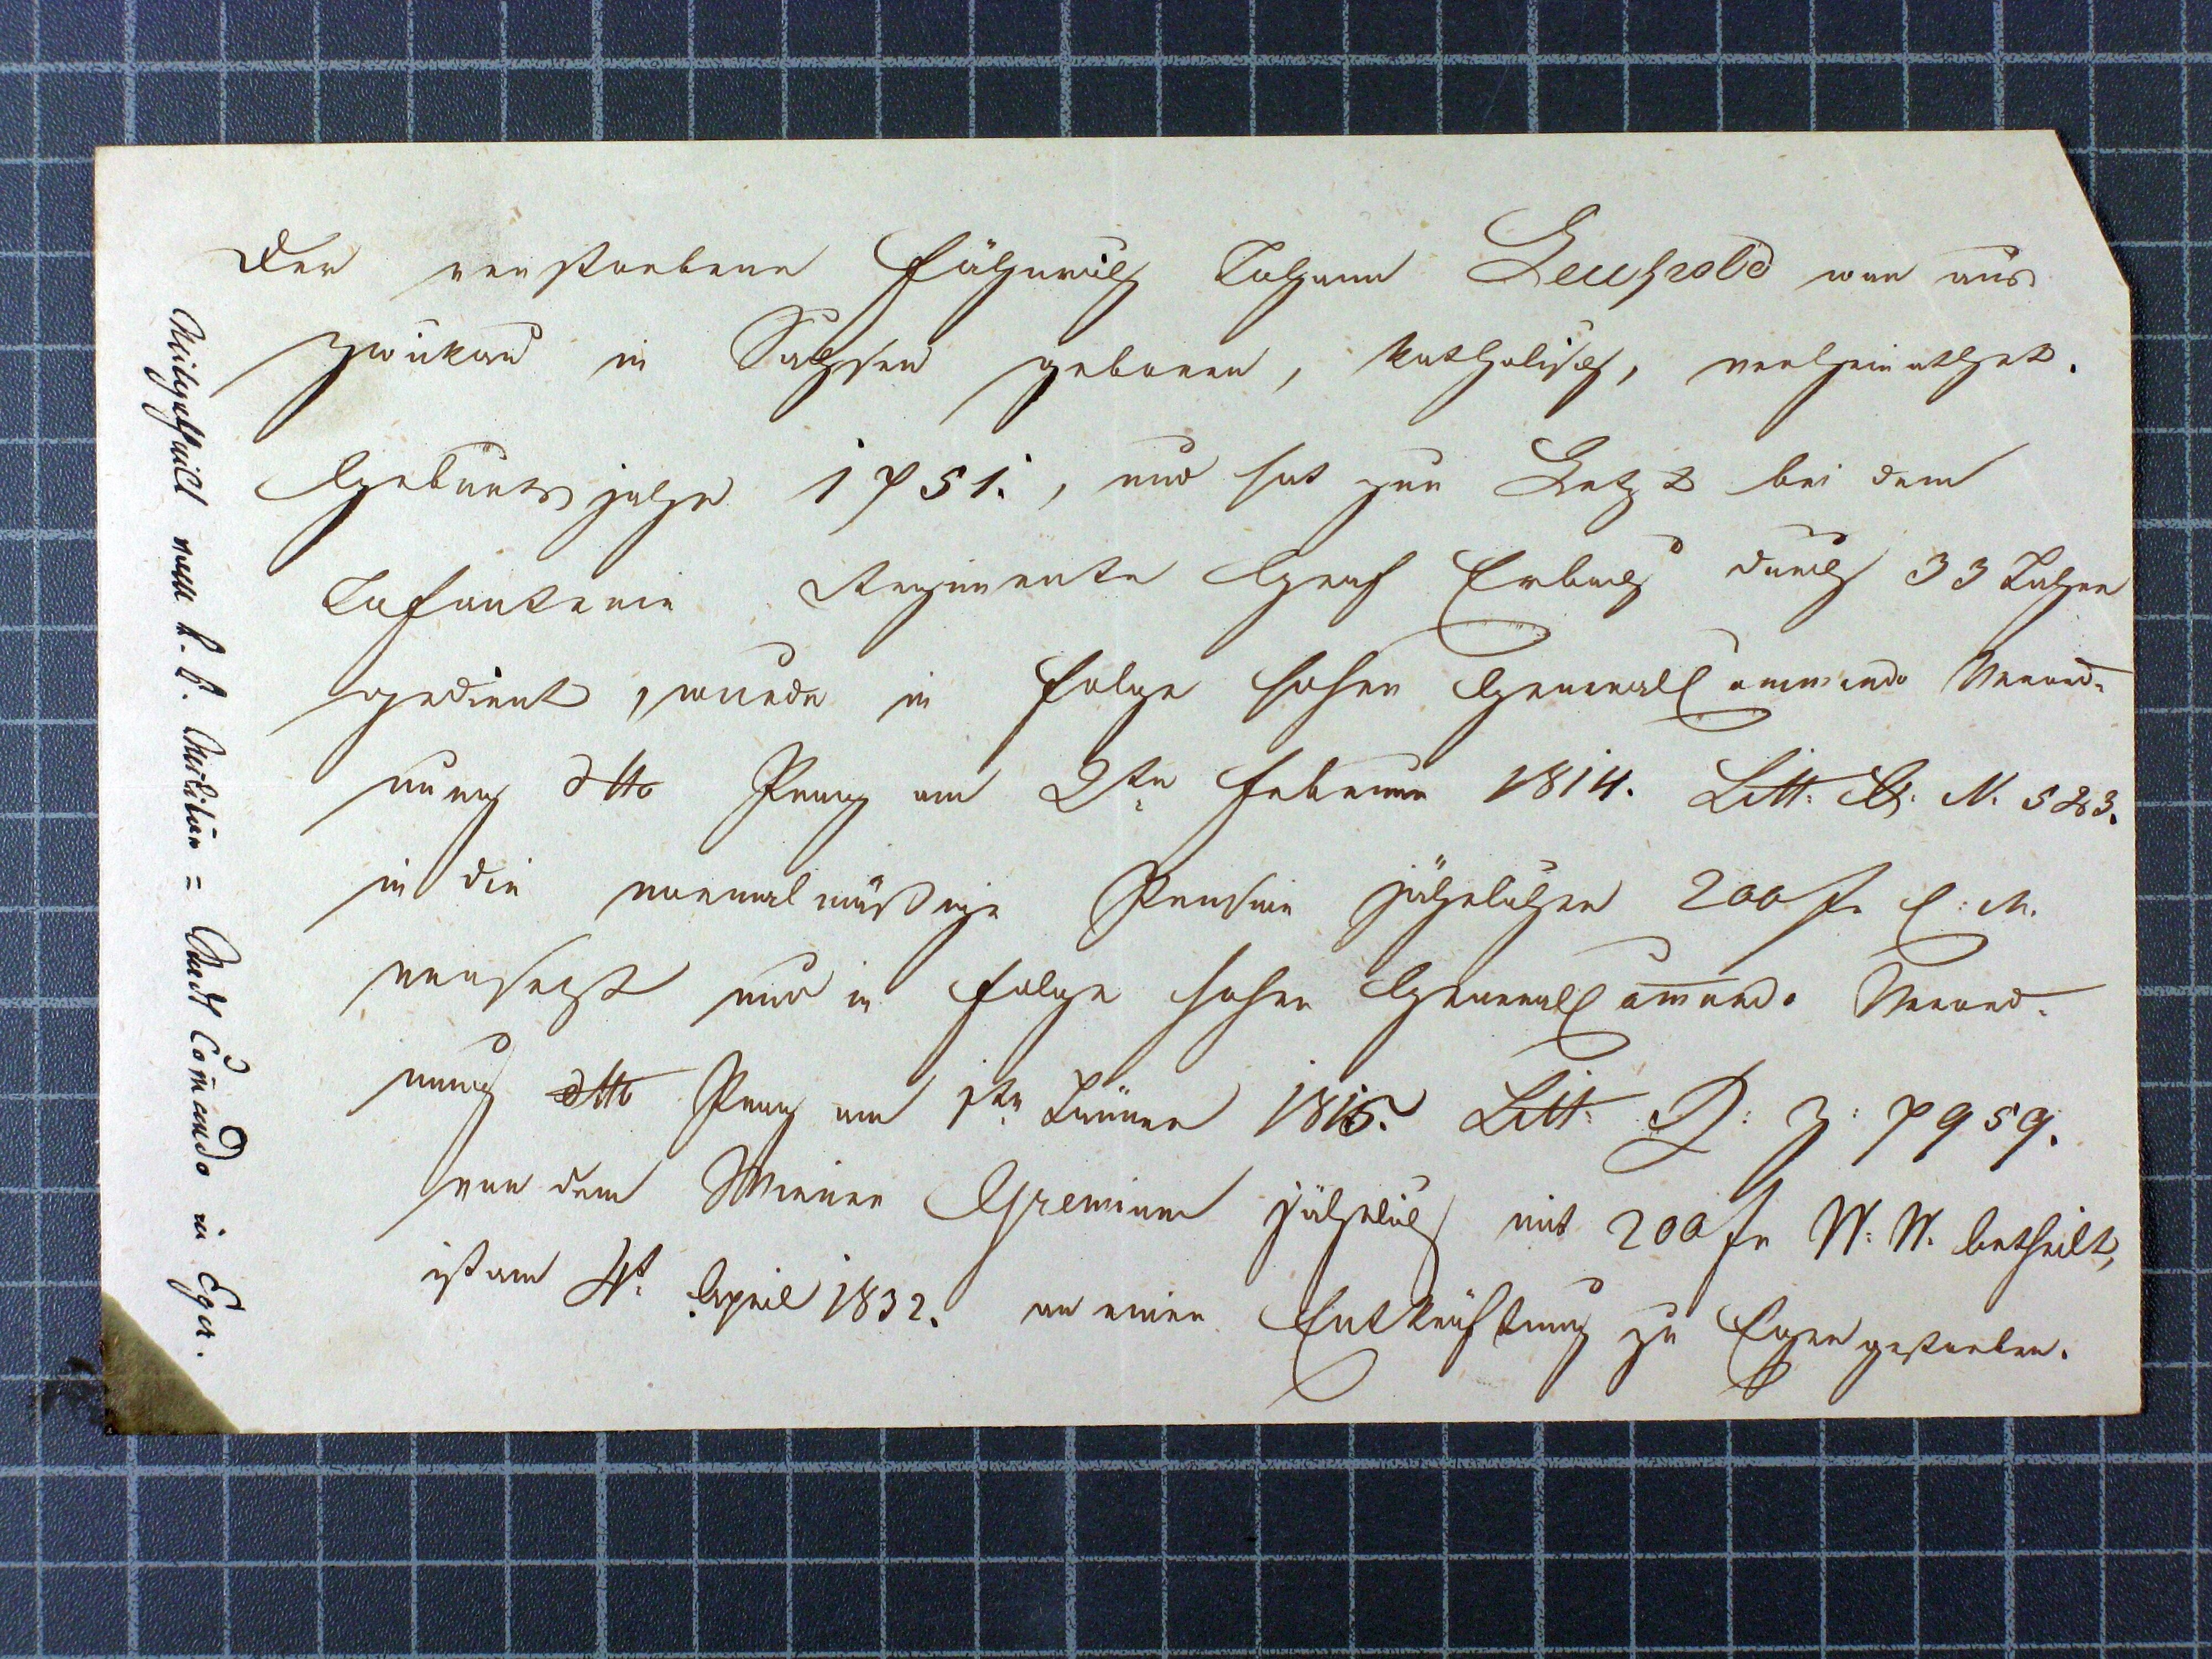 Der verstorbene Fähnrich Johann Leuhold war aus
Zwickau in Sachsen geboren, katholisch, verheirathet.
Geburtsjahr 1751., und hat zur Letzt bei dem
Infanterie Regimente Graf Erbach durch 33 Jahre
gedient, wurde in Folge hoher General Commando Verord-
nung dtto Prag am 2ten Februar 1814. Litt: N. 523.
in die normalmäßige Pension jährlicher 200 fr C: M.
versetzt und in Folge hoher General Commando Verord-
nung dtto Prag am 1ten Jänner 1815. Litt: D: Z: 7959.
von dem Wiener Gremium jährlich mit 200 fr W: W. betheilt,
ist am 4t April 1832. an einer Entkräftung zu Eger gestorben.
Mitgetheilt vom k. k. Militär = Stadt Com̄ando in Eger.